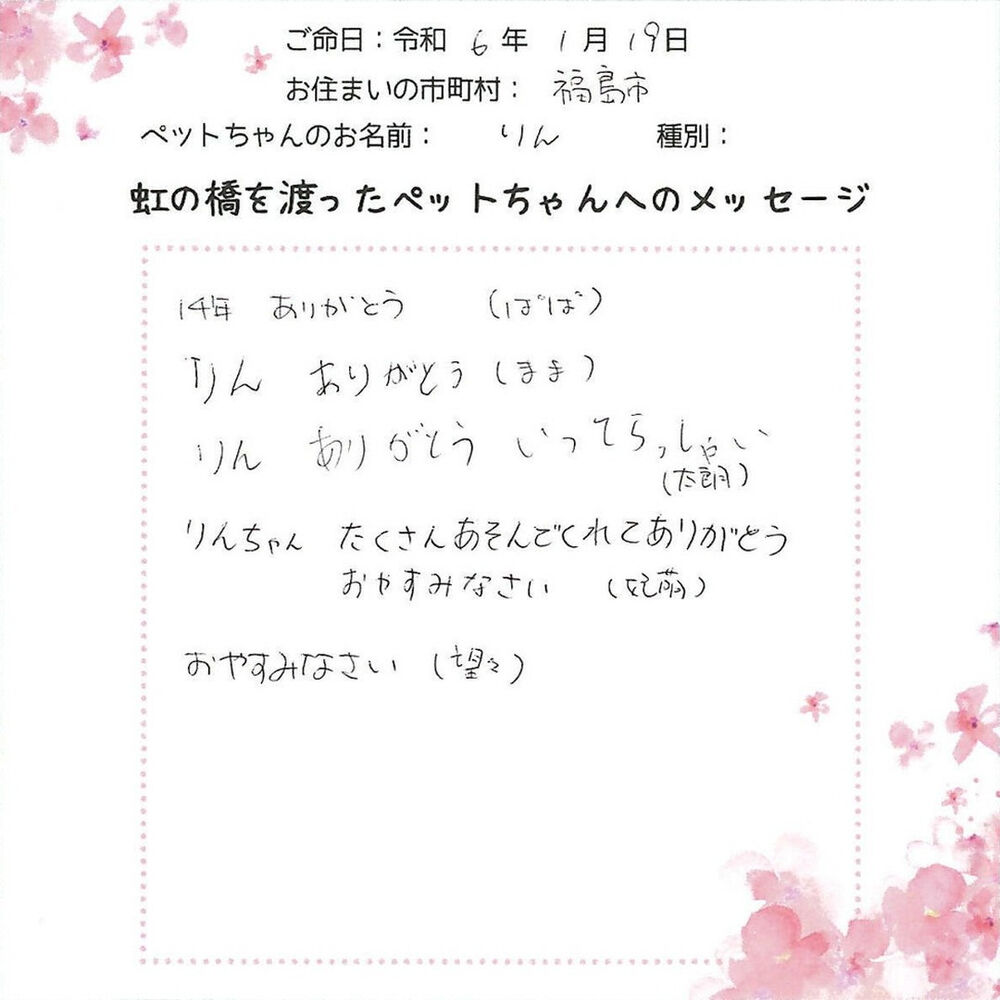 ご命日：令和 6 年 1 月 19 日
お住まいの市町村： 福島市
ペットちゃんのお名前： りん 種別：
虹の橋を渡ったペットちゃんへのメッセージ
14年 ありがとう (ばば)
りん ありがとう (まま)
りん ありがとう いってらっしゃい
(太朗)
りんちゃん たくさんあそんでくれてありがとう
おやすみなさい (妃萌)
おやすみなさい (望々)